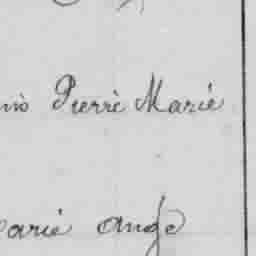 Pierre Marie
Marie ange